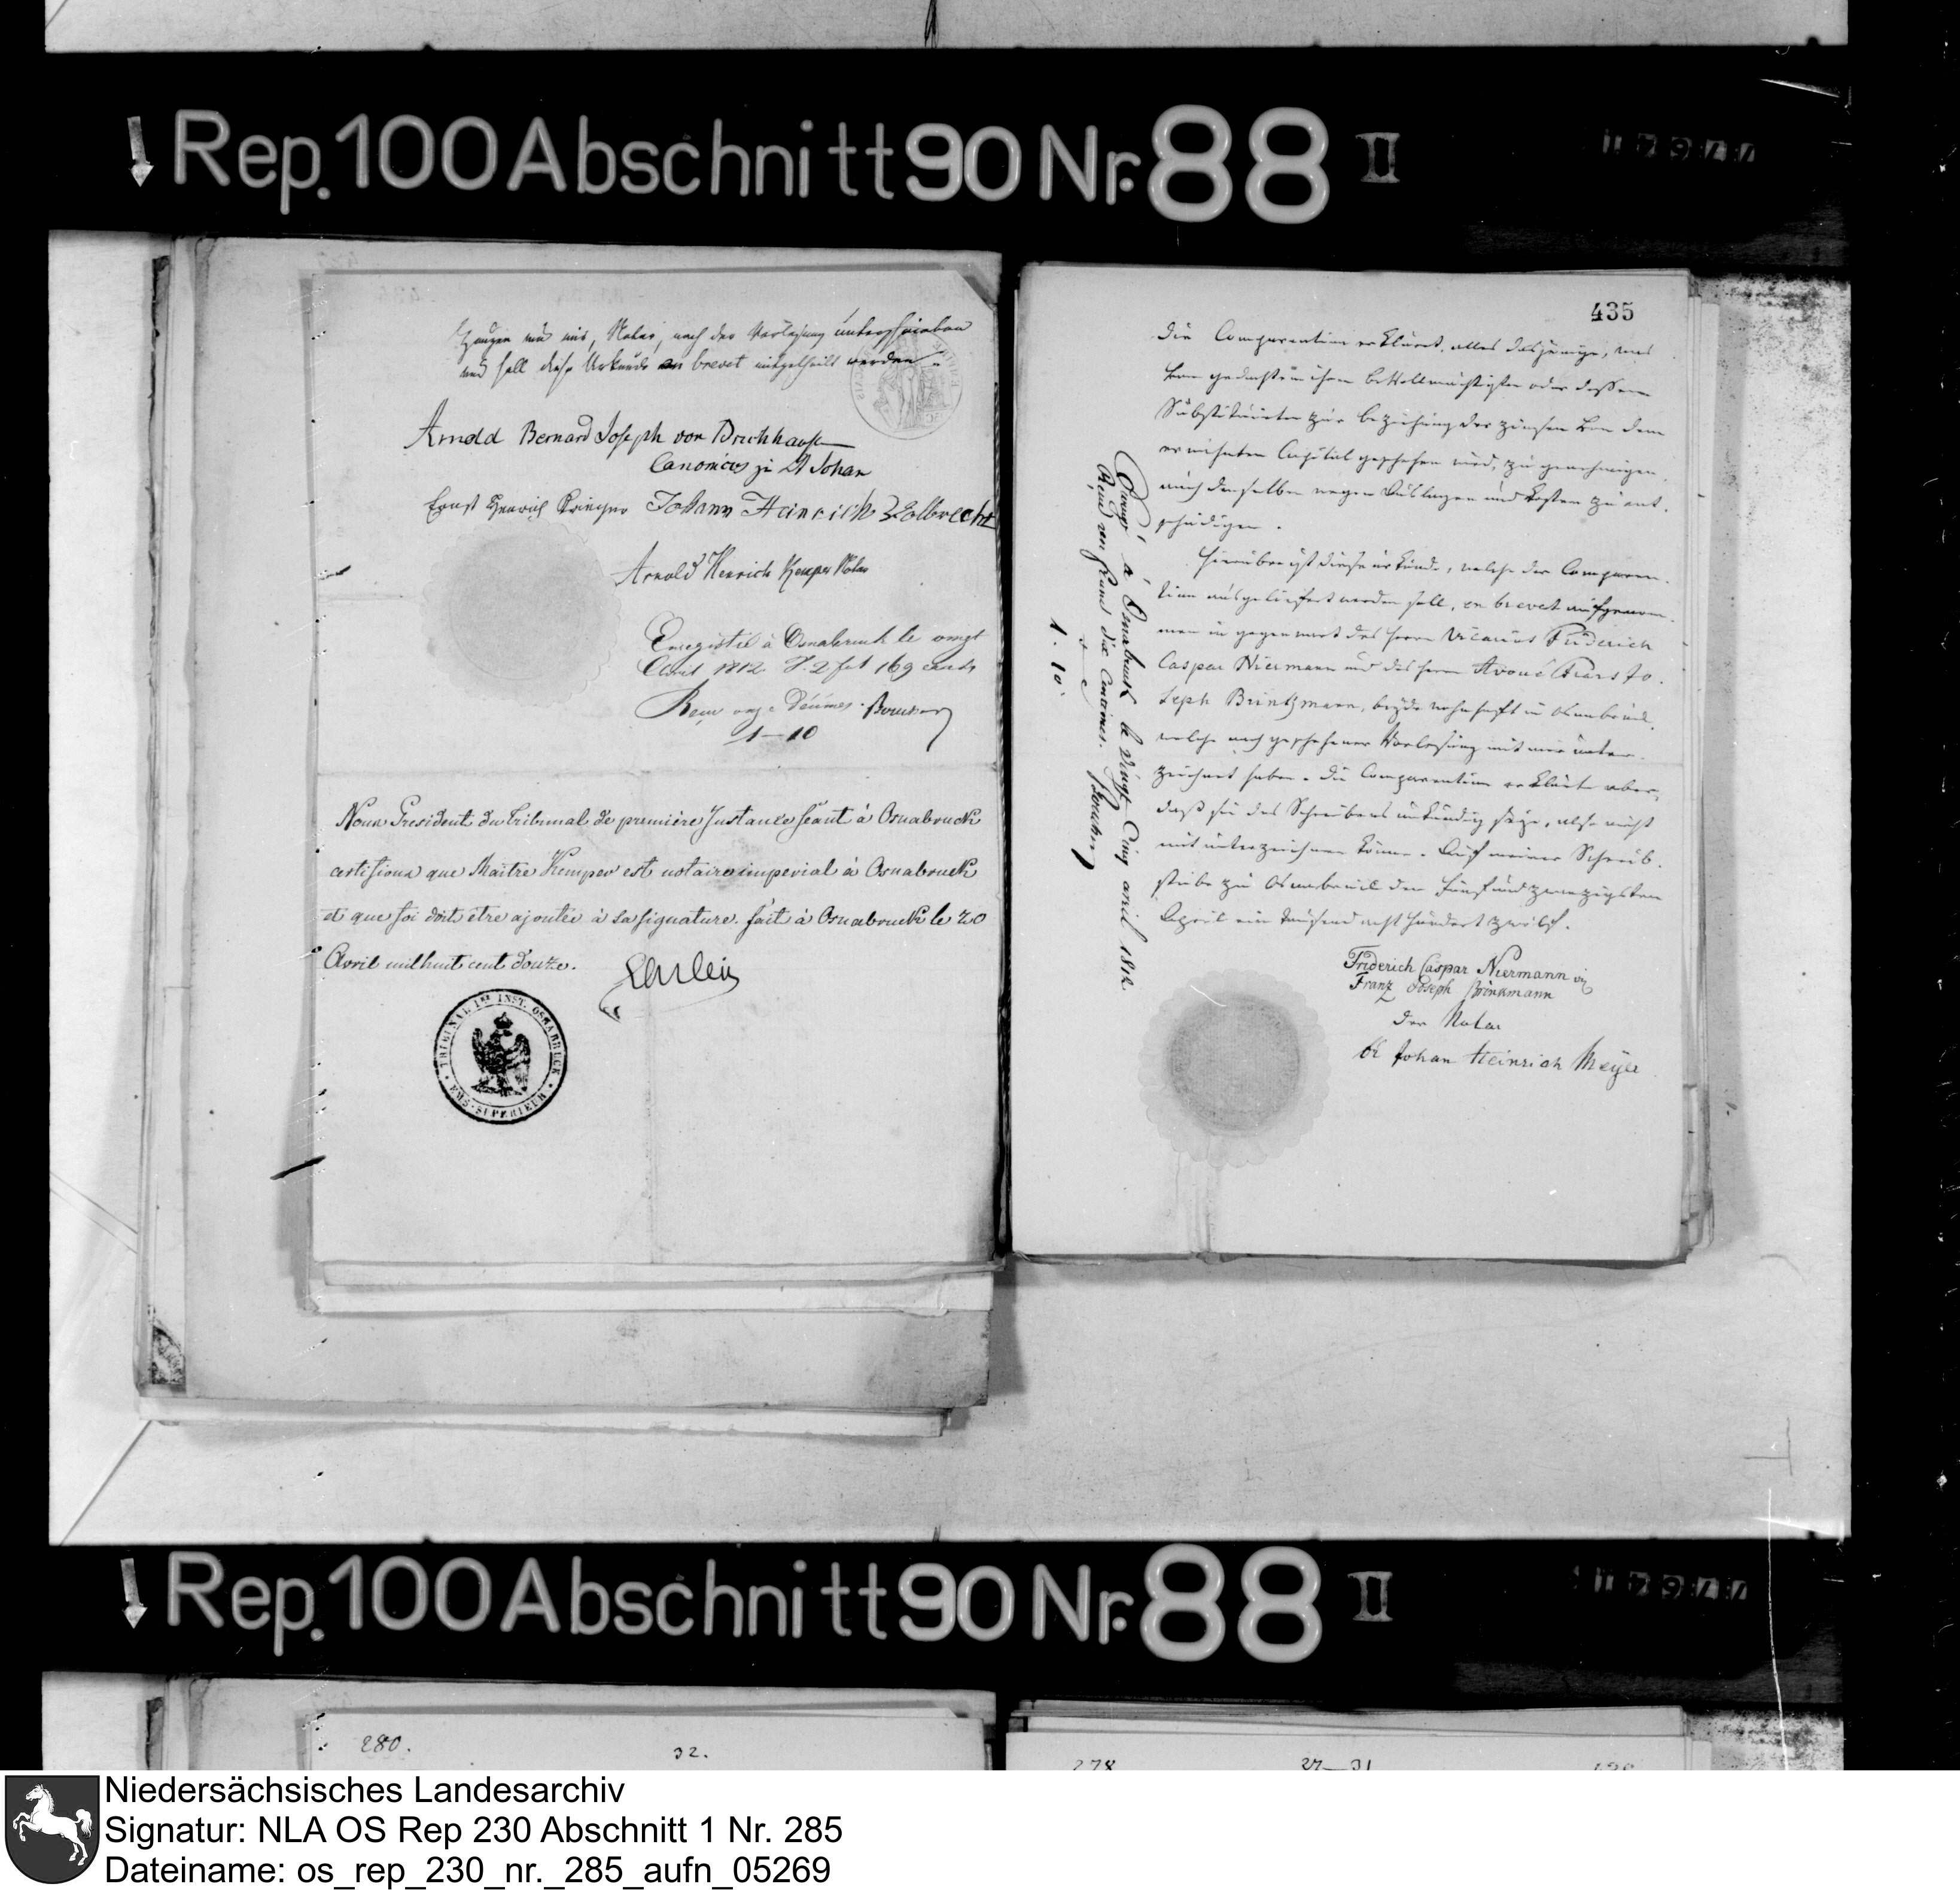 Rep. 100 Abschnitt 90 Nr. 88 II
Zeugen und mir, Notar, nach der Vorlesung unterschrieben
und soll diese Urkunde en brevet mitgetheilt werden
Arnold Bernard Joseph von
Canonicus zu St Johan
Ernst Henrich Johann Heinrich
Arnold Henrich Kemper Notar
Enregistré à Osnabruck le vingt
Avril 1812
Reçu onze décimes.
1—10
Nous President du Tribunal de premiére Instance séant à Osnabruck
certifions que Maitre Kemper est notaire imperial à Osnabruck
et que foi doit etre ajoutée à sa signature. fait à Osnabruck le 20
Avril mil huit cent douze.
TRIBUNAL 1RE INST. OSNABRUCK
EMS-SUPERIEUR
435
die Comparentinn erkläret, alles dasjenige, was
von gedachtem ihrem bevollmächtigten oder dessen
Substituirten zur beziehung der Zinsen von dem
erwähnten Capital geschehen wird, zu genehmigen,
auch denselben wegen Auslagen und Kosten zu ent-
schädigen.
Hierüber ist diese urkunde, welche der Comparen-
tinn ausgeliefert werden soll, en brevet aufgenom-
men in gegenwart des Herrn Vicarius Friderich
Caspar Niermann und des Herrn Avoué Franz Jo-
seph Brinkmann, beyde wohnhaft in Osnabrück,
welche nach geschehener Vorlesung mit mir unter-
zeichnet haben. die Comparentinn erklärte aber,
daß sie des Schreibens unkundig seye, also nicht
mit unterzeichnen könne. Auf meiner Schreib-
stube zu Osnabrück den fünf und zwanzigsten
April ein tausend acht hundert zwölf.
Friderich Caspar Niermann
Franz Joseph Brinkmann
der Notar
Johan Heinrich Meyer
à Osnabruck le Vingt Cinq avril 1812
Reçu un franc dix Centimes.
1. 10.
Rep. 100 Abschnitt 90 Nr. 88 II
280.
32.
278
Niedersächsisches Landesarchiv
Signatur: NLA OS Rep 230 Abschnitt 1 Nr. 285
Dateiname: os_rep_230_nr._285_aufn_05269